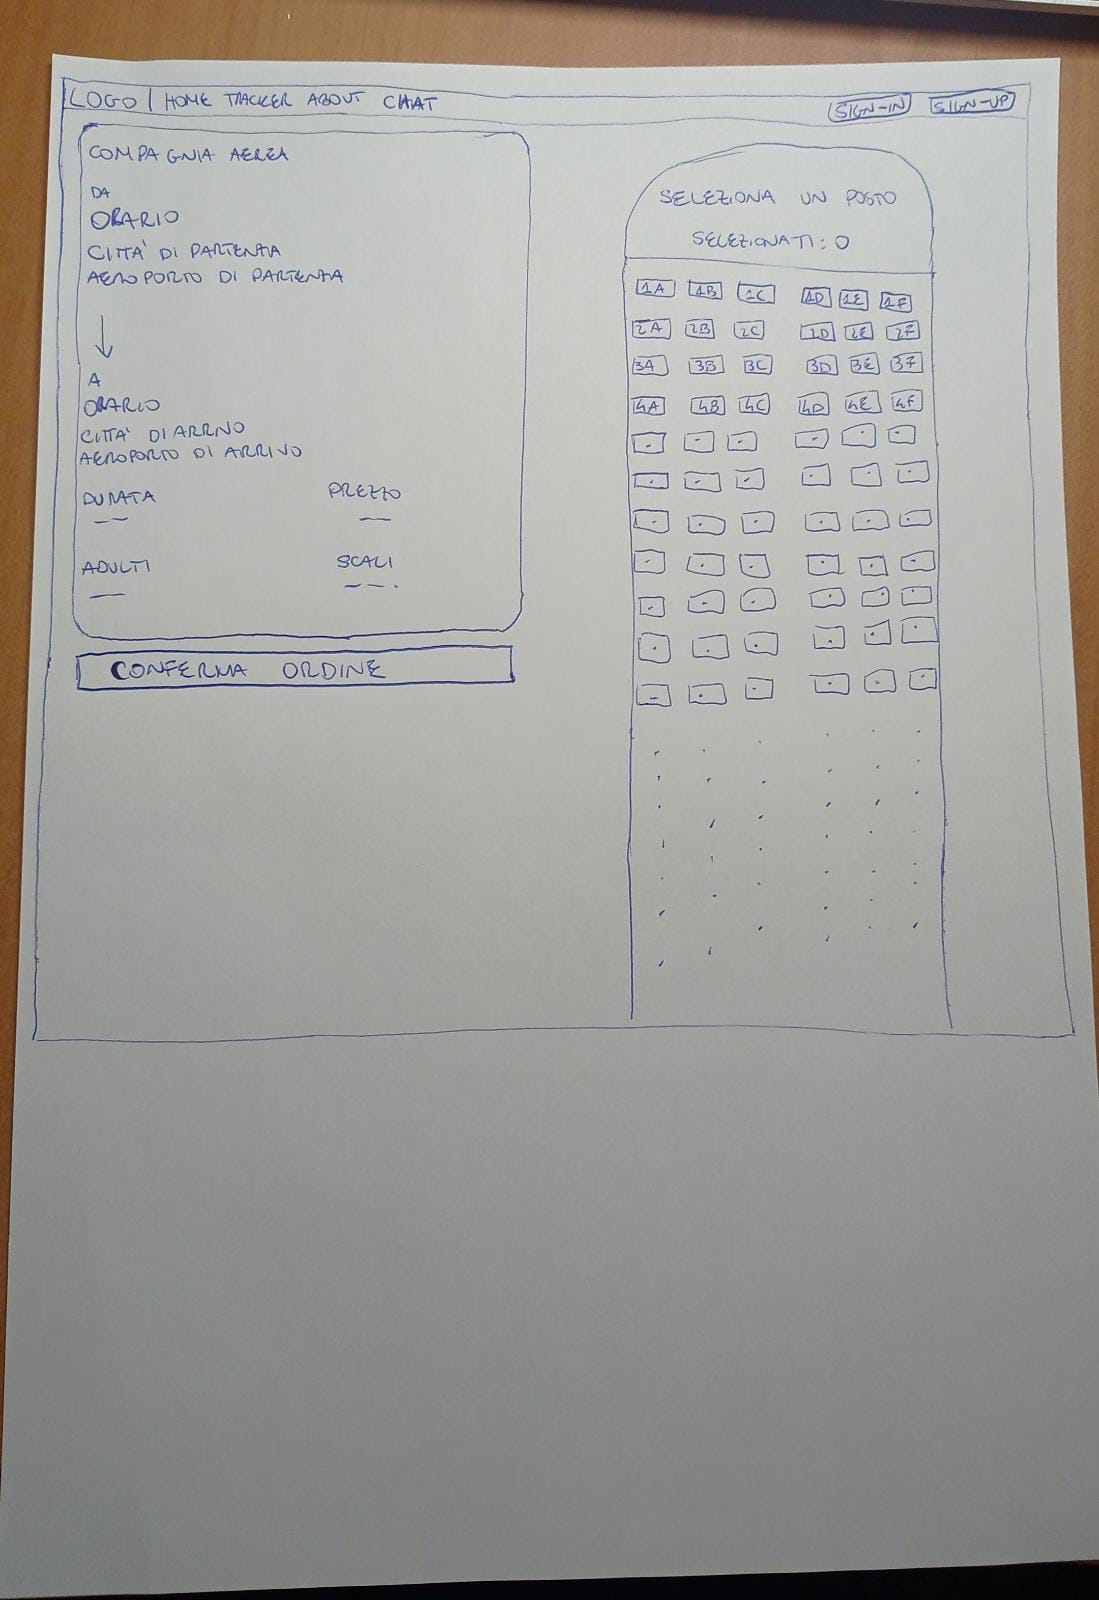 LOGO | HOME TRACKER ABOUT CHAT
SIGN-IN SIGN-UP
COMPAGNIA AEREA
DA
ORARIO
CITTA' DI PARTENZA
AEROPORTO DI PARTENZA
A
ORARIO
CITTA' DI ARRIVO
AEROPORTO DI ARRIVO
DURATA PREZZO
ADULTI SCALI
CONFERMA ORDINE
SELEZIONA UN POSTO
SELEZIONATI: 0
1A 1B 1C 1D 1E 1F
2A 2B 2C 2D 2E 2F
3A 3B 3C 3D 3E 3F
4A 4B 4C 4D 4E 4F